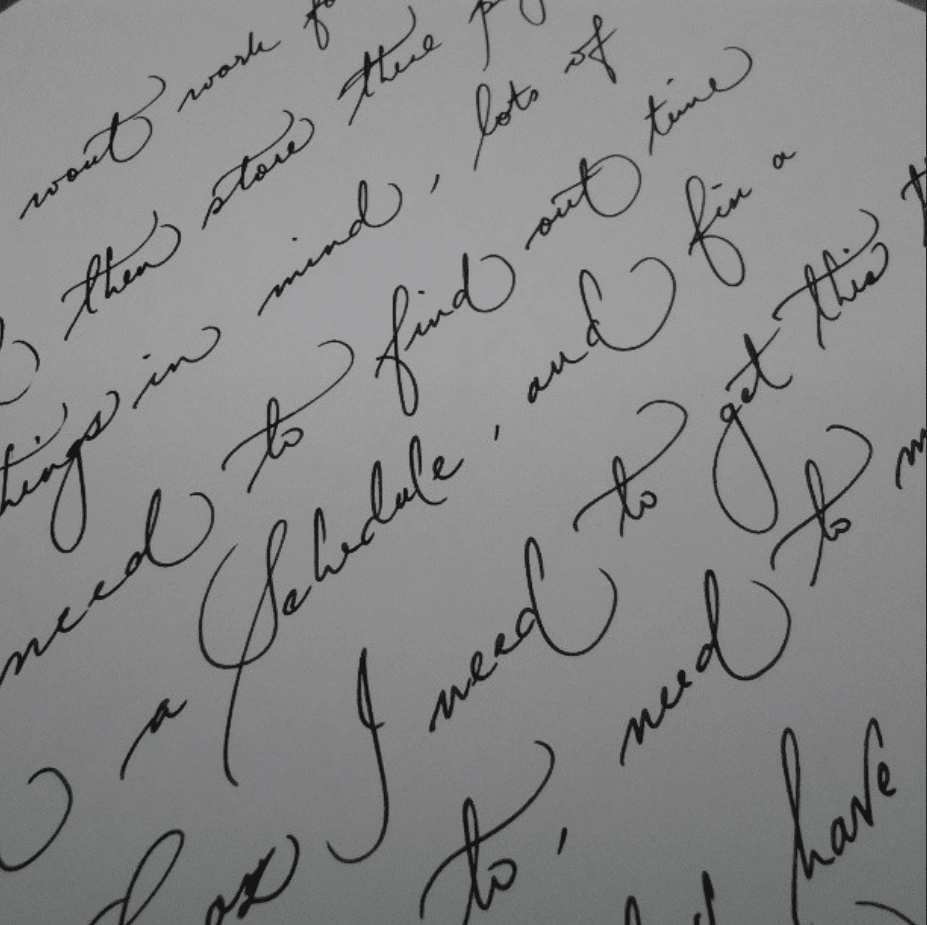 wont work
then store thee
things in mind, lots of
need to find out time
a Schedule, and fin a
I need to get this
to, need to
have